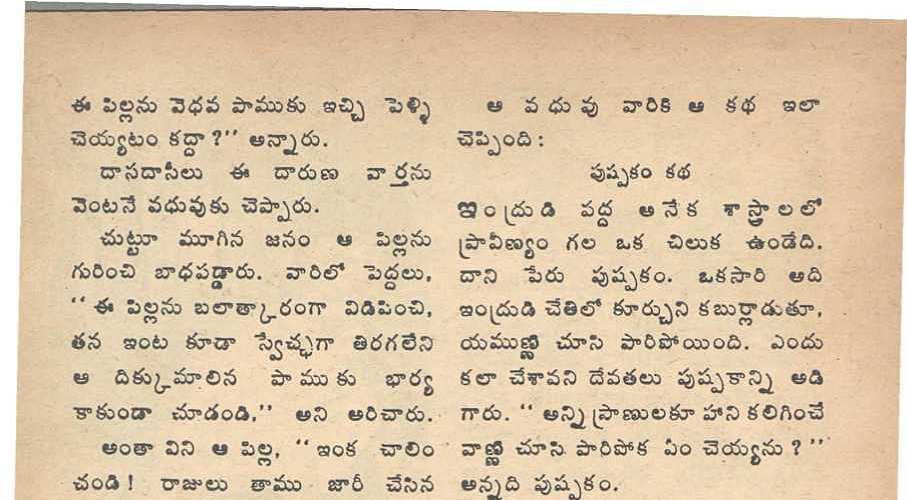 ఈ పిల్లను వెధవ పాముకు ఇచ్చి పెళ్ళి
చెయ్యటం కద్దా ?'' అన్నారు.
దాసదాసీలు ఈ దారుణ వార్తను
వెంటనే వధువుకు చెప్పారు.
చుట్టూ మూగిన జనం ఆ పిల్లను
గురించి బాధపడ్డారు. వారిలో పెద్దలు,
'' ఈ పిల్లను బలాత్కారంగా విడిపించి,
తన ఇంట కూడా స్వేచ్ఛగా తిరగలేని
ఆ దిక్కుమాలిన పాముకు భార్య
కాకుండా చూడండి,'' అని అరిచారు.
అంతా విని ఆ పిల్ల, '' ఇంక చాలిం
చండి ! రాజులు తాము జారీ చేసిన
ఆ వధువు వారికి ఆ కథ ఇలా
చెప్పింది :
పుష్పకం కథ
ఇంద్రుడి పద్ద అనేక శాస్త్రాలలో
ప్రావీణ్యం గల ఒక చిలుక ఉండేది.
దాని పేరు పుష్పకం. ఒకసారి అది
ఇంద్రుడి చేతిలో కూర్చుని కబుర్లాడుతూ,
యముణ్ణి చూసి పారిపోయింది. ఎందు
కలా చేశావని దేవతలు పుష్పకాన్ని అడి
గారు. '' అన్ని ప్రాణులకూ హాని కలిగించే
వాణ్ణి చూసి పారిపోక ఏం చెయ్యను ? ''
అన్నది పుష్పకం.